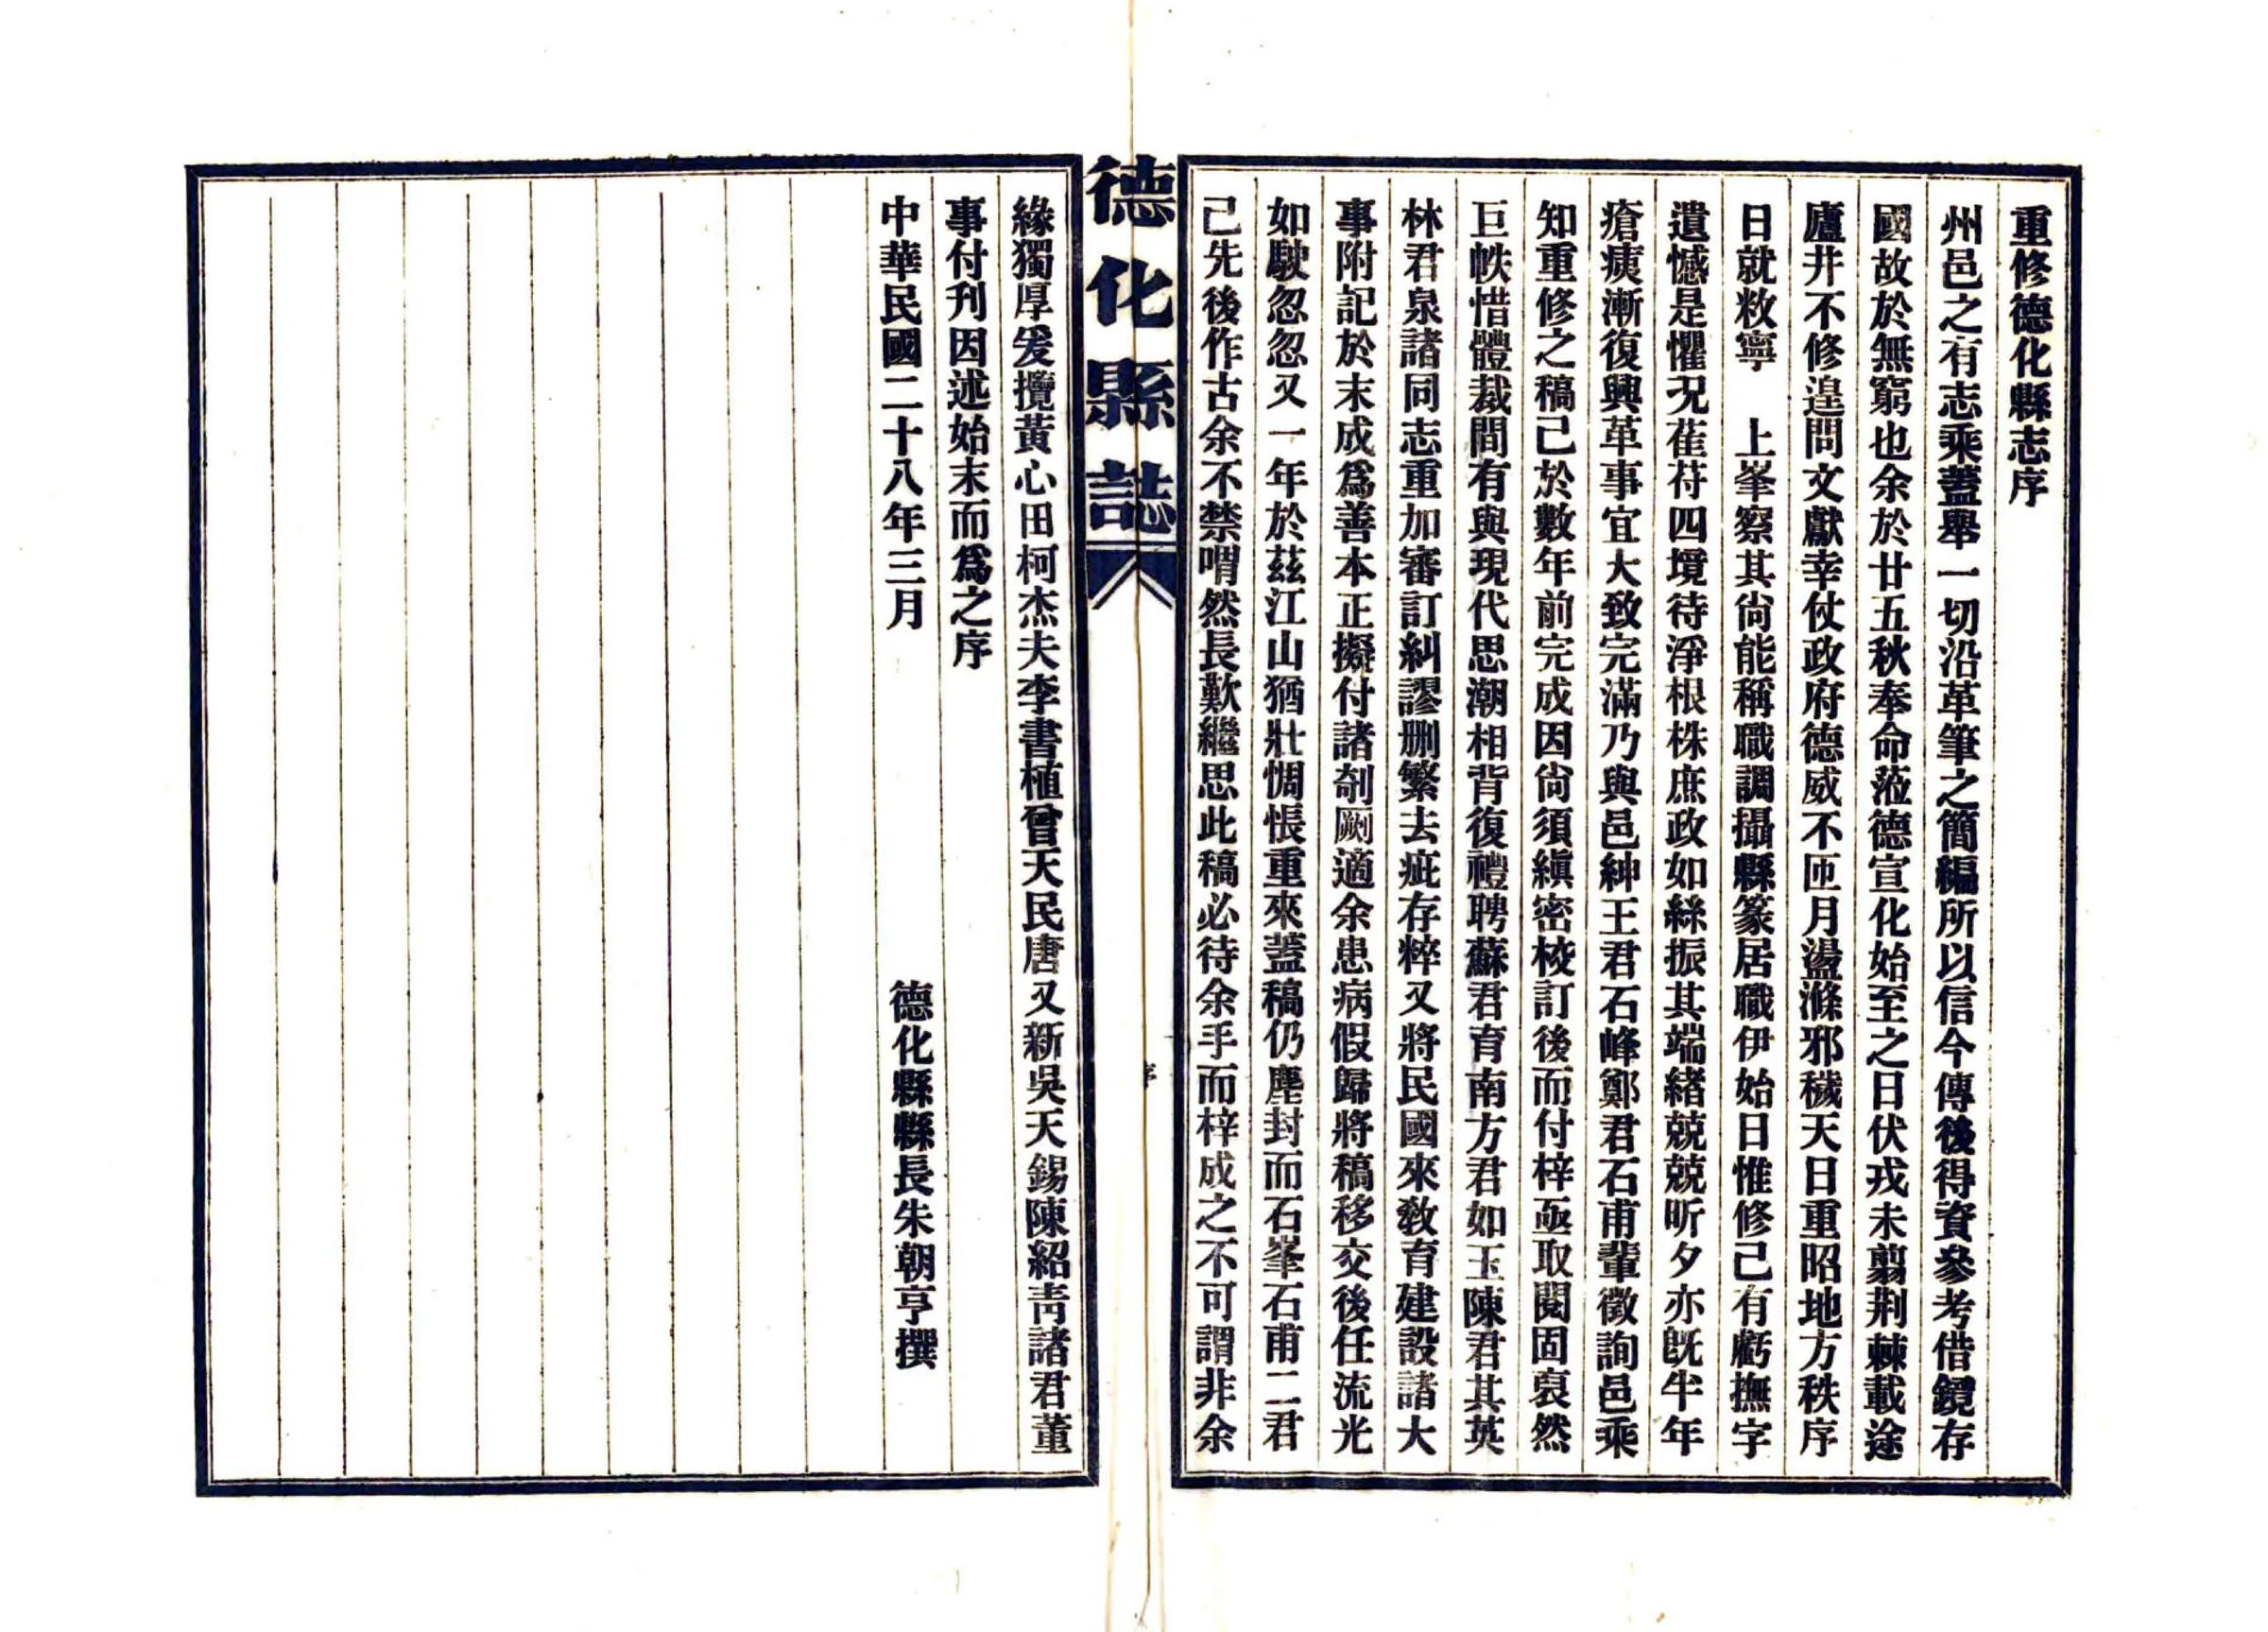 重修德化縣志序
州邑之有志乘蓋舉一切沿革筆之簡編所以信今傳後得資參考借鏡存
國故於無窮也余於廿五秋奉命蒞德宣化始至之日伏戎未翦荆棘載途
廬井不修遑問文獻幸仗政府德威不匝月盪滌邪穢天日重昭地方秩序
日就敉寧　上峯察其尙能稱職調攝縣篆居職伊始日惟修己有虧撫字
遺憾是懼况萑苻四境待淨根株庶政如絲振其端緒兢兢昕夕亦旣半年
瘡痍漸復興革事宜大致完滿乃與邑紳王君石峰鄭君石甫輩徵詢邑乘
知重修之稿己於數年前完成因尙須縝密校訂後而付梓亟取閱固裒然
巨帙惜體裁間有與現代思潮相背復禮聘蘇君育南方君如玉陳君其英
林君泉諸同志重加審訂糾謬删繁去疵存粹又將民國來敎育建設諸大
事附記於末成爲善本正擬付諸剞劂適余患病假歸將稿移交後任流光
如駛忽忽又一年於茲江山猶壯惆悵重來蓋稿仍塵封而石峯石甫二君
己先後作古余不禁喟然長歎繼思此稿必待余手而梓成之不可謂非余
德化縣誌
序
緣獨厚爰攬黃心田柯杰夫李書植曾天民唐又新吳天錫陳紹靑諸君董
事付刊因述始末而爲之序
中華民國二十八年三月　德化縣縣長朱朝亨撰